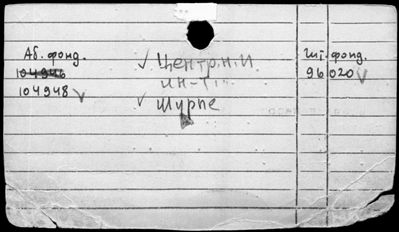 Аб. фонд.
104946
104948
Центр.н.и.
ин-т
Шурпе
Чт. фонд.
96020